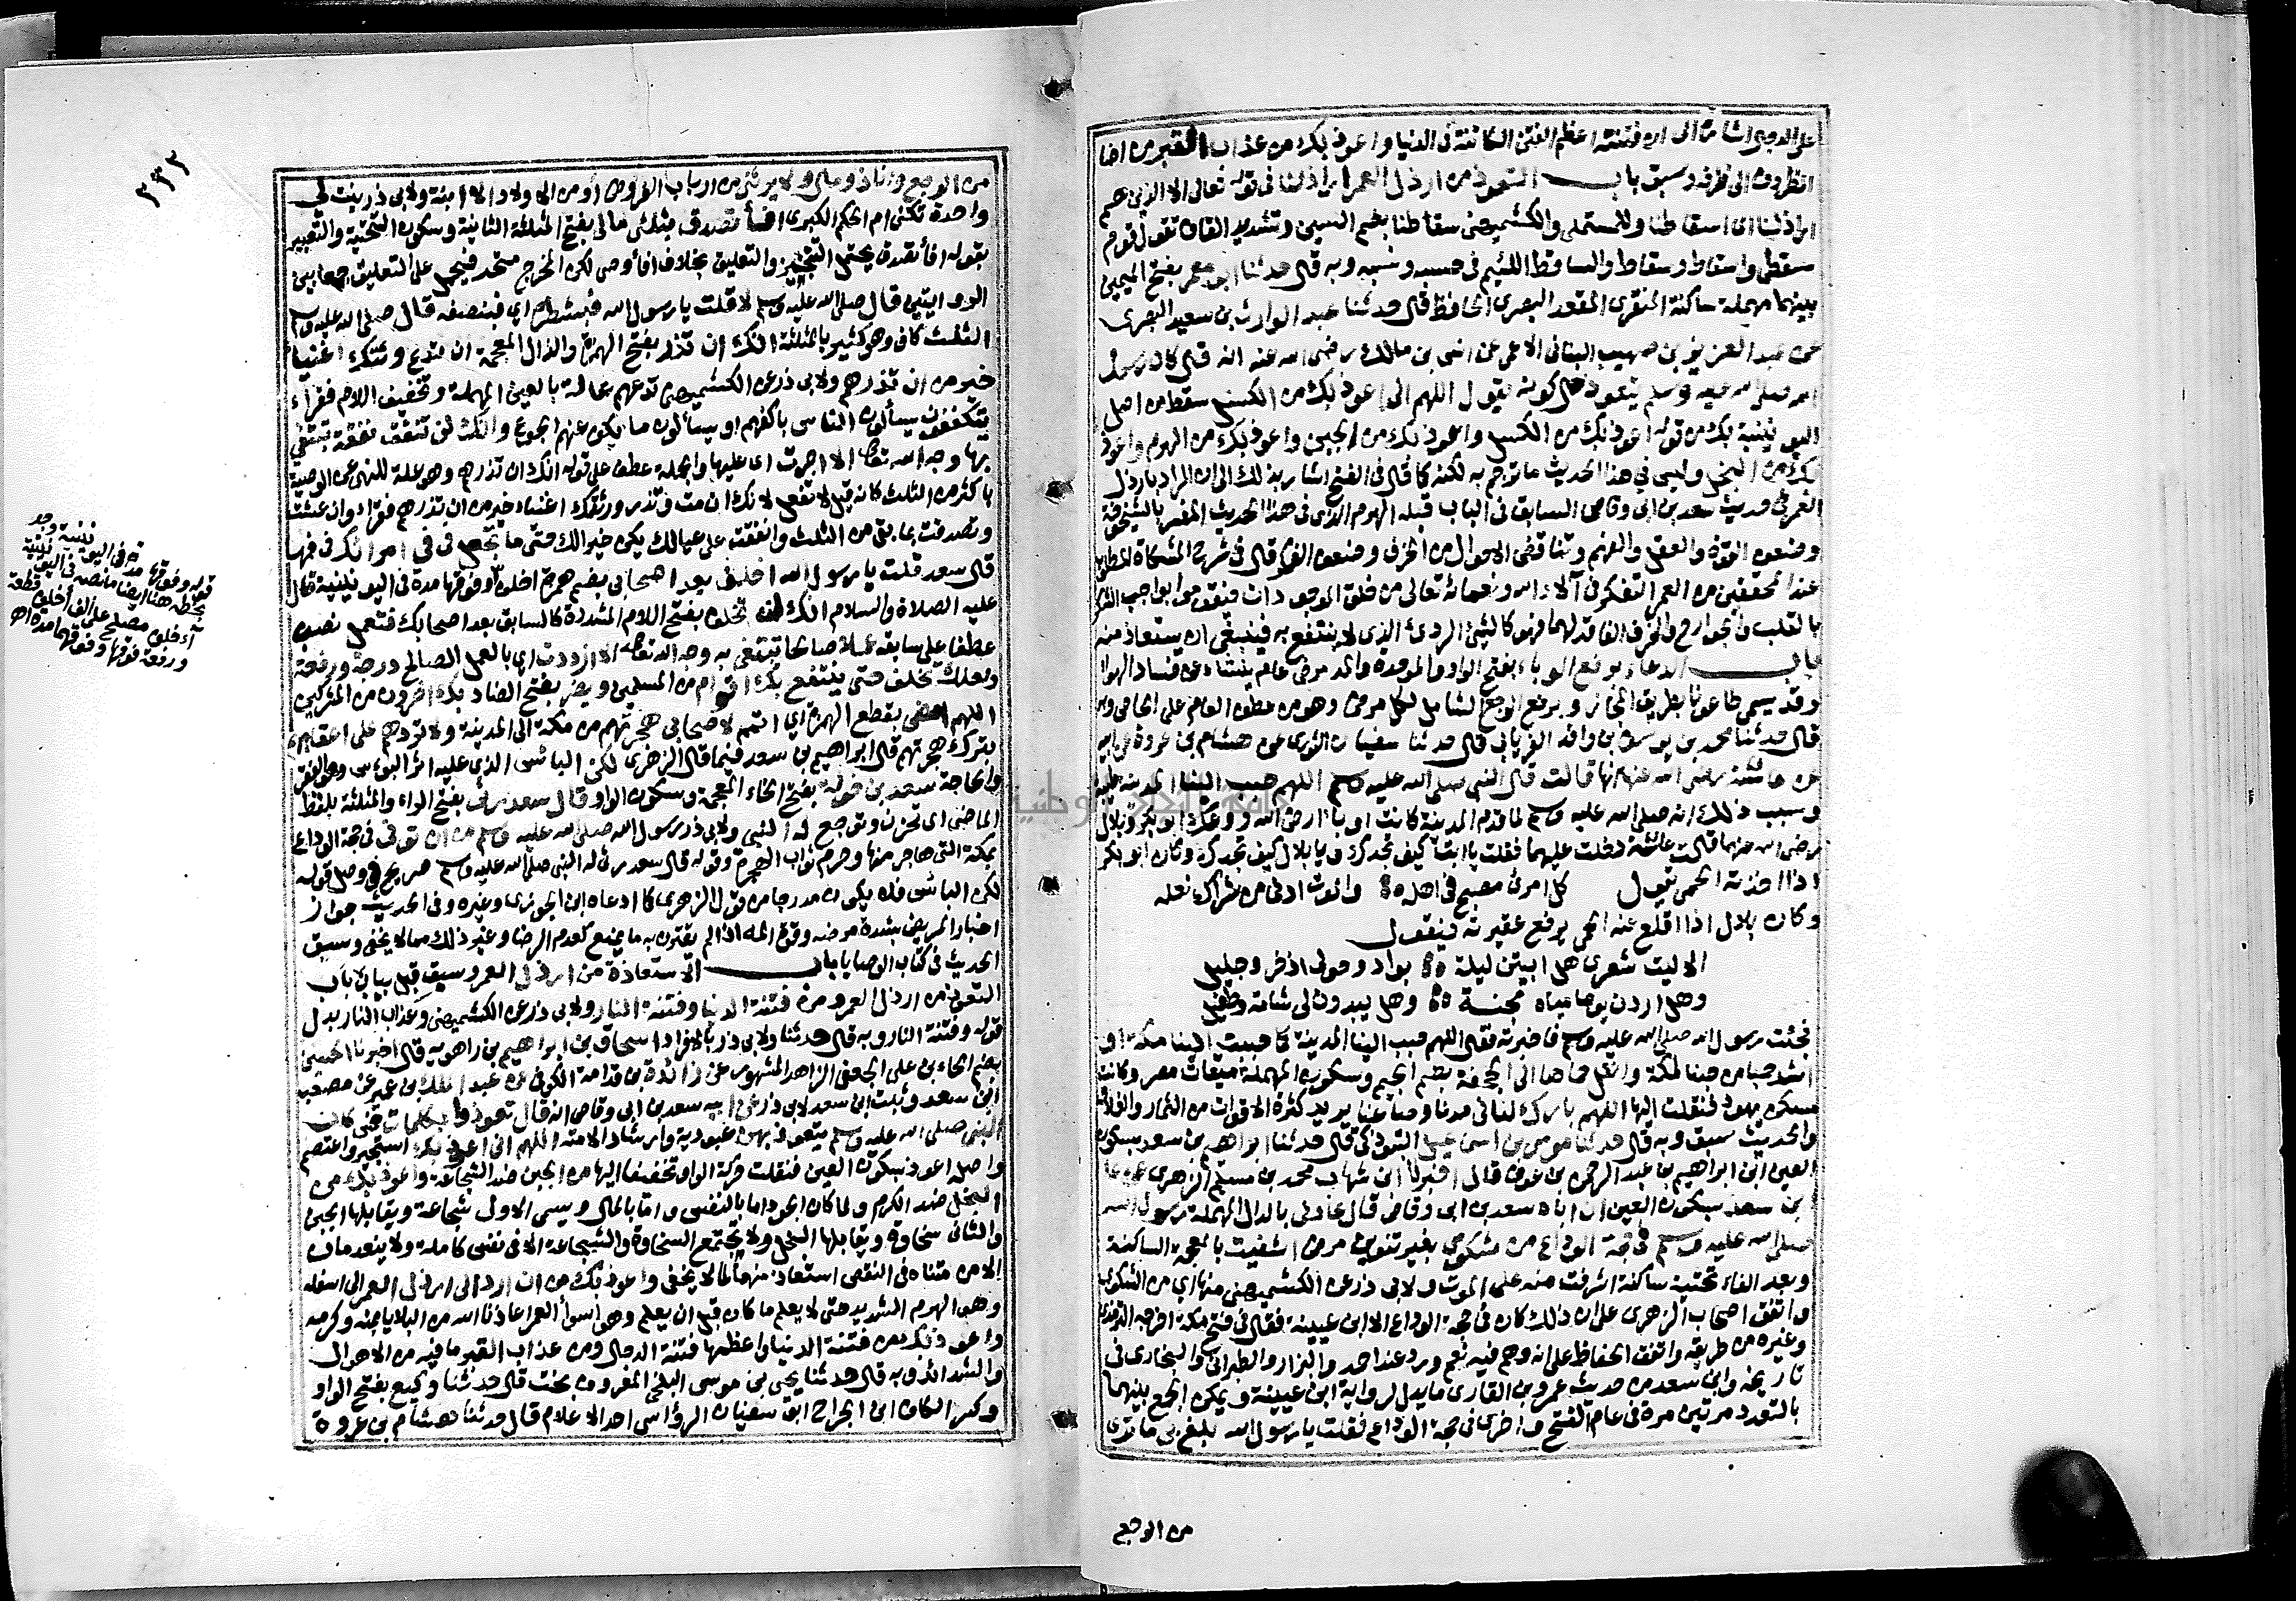 على الدجال اشارة الى ان فتنته اعظم الفتن الكائنة في الدنيا واعوذ بك من عذاب القبر من اضافة
المظروف الى ظرفه وسبق باب التعوذ من ارذل العمر اراذلنا في قوله تعالى الا الذين هم
اراذلنا اى اسقاطنا وللمستملى والكشميهنى سقاطنا بضم السين وتشديد القاف تقول قوم
سقطى واسقاط وسقاط والساقط اللئيم في حسبه ونسبه وبه قال حدثنا ابو معمر بفتح الميمين
بينهما مهملة ساكنة المنقرى المقعد البصرى الحافظ قال حدثنا عبد الوارث بن سعيد البصرى
عن عبد العزيز بن صهيب البنانى الاعمى عن انس بن مالك رضى الله عنه انه قال كان رسول
الله صلى الله عليه وسلم يتعوذ حال كونه يقول اللهم انى اعوذ بك من الكسل سقط من اصل
اليونينية بك من قوله اعوذ بك من الكسل واعوذ بك من الجبن واعوذ بك من الهرم واعوذ
بك من البخل وليس في هذا الحديث ما ترجم به لكنه كما قال في الفتح اشار بذلك الى ان المراد بارذل
العمر في حديث سعد بن ابى وقاص السابق في الباب قبله الهرم الذى في هذا الحديث المفسر بالشيخوخة
وضعف القوة والعقل والفهم وتناقض الاحوال من الخرف وضعف القوى قال في شرح المشكاة المطلوب
عند المحققين من العمر التفكر في آلاء الله ونعمائه تعالى من خلق الموجودات فيقوموا بواجب الشكر
بالقلب والجوارح والخرف الفاقد لهما فهو كالشئ الردئ الذى لا ينتفع به فينبغى ان يستعاذ منه
باب الدعاء برفع الوباء بفتح الواو والموحدة والمد مرض عام ينشاء عن فساد الهواء
وقد يسمى طاعونا بطريق المجاز وبرفع الوجع الشامل لكل مرض وهو من عطف العام على الخاص وبه
قال حدثنا محمد بن يوسف بن واقد الفريابى قال حدثنا سفيان الثورى عن هشام بن عروة عن ابيه
عن عائشة رضى الله عنها انها قالت قال النبى صلى الله عليه وسلم اللهم حبب الينا المدينة
وسبب ذلك انه صلى الله عليه وسلم لما قدم المدينة كانت اوبأ ارض الله ووعك ابو بكر وبلال
رضى الله عنهما قالت عائشة دخلت عليهما فقلت يا ابت كيف تجدك ويا بلال كيف تجدك وكان ابو بكر
اذا اخذته الحمى يقول كل امرئ مصبح في اهله والموت ادنى من شراك نعله
وكان بلال اذا اقلع عنه الحمى يرفع عقيرته فيقول
الا ليت شعرى هل ابيتن ليلة بواد وحولى اذخر وجليل
وهل اردن يوما مياه مجنة وهل يبدون لى شامة وطفيل
فجئت رسول الله صلى الله عليه وسلم فاخبرته فقال اللهم حبب الينا المدينة كما حببت الينا مكة او
اشد حبا من حبنا لمكة وانقل حماها الى الجحفة بضم الجيم وسكون المهملة ميقات مصر وكانت
مسكن يهود فنقلت اليها اللهم بارك لنا في مدنا وصاعنا يريد كثرة الاقوات من الثمار والغلات
والحديث سبق وبه قال حدثنا موسى بن اسماعيل التبوذكى قال حدثنا ابراهيم بن سعد بسكون
العين ابن ابراهيم بن عبد الرحمن بن عوف قال اخبرنا ابن شهاب محمد بن مسلم الزهرى عن عامر
بن سعد بسكون العين ان اباه سعد بن ابى وقاص قال عادنى بالدال المهملة رسول الله
صلى الله عليه وسلم في حجة الوداع من شكوى بغير تنوين مرض اشفيت بالمعجمة الساكنة
وبعد الفاء تحتية ساكنة اشرفت منه على الموت ولابى ذر عن الكشميهنى منها اى من الشكوى
واتفق اصحاب الزهرى على ان ذلك كان في حجة الوداع الا ابن عيينة فقال في فتح مكة اخرجه الترمذى
وغيره من طريقه واتفق الحفاظ على انه وهم فيه نعم ورد عند احمد والبزار والطبرانى والبخارى في
تاريخه وابن سعد من حديث عمرو بن القارى ما يدل لرواية ابن عيينة ويمكن الجمع بينهما
بالتعدد مرتين مرة في عام الفتح واخرى في حجة الوداع فقلت يا رسول الله بلغ بى ما ترى
من الوجع
٢٣٢
من الوجع وانا ذو مال ولا يرثنى من ارباب الفروض أو من الاولاد الا ابنة ولابى ذر بنت لى
واحدة تكنى ام الحكم الكبرى افأتصدق بثلثى مالى بفتح المثلثة الثانية وسكون التحتية والتعبير
بقوله افأتصدق يحتمل التنجيز والتعليق بخلاف افأوصى لكن المخرج متحد فيحمل على التعليق جمعا بين
الروايتين قال صلى الله عليه وسلم لا قلت يا رسول الله فبشطره اى فبنصفه قال صلى الله عليه وسلم
الثلث كاف وهو كثير بالمثلثة انك ان تذر بفتح الهمزة والذال المعجمة ان تدع وتترك اغنياء
خير من ان تذرهم ولابى ذر عن الكشميهنى تدعهم عالة بالعين المهملة وتخفيف اللام فقراء
يتكففون يسألون الناس باكفهم او يسألون ما يكف عنهم الجوع وانك لن تنفق نفقة تبتغى
بها وجه الله تعالى الا اجرت اى عليها والجملة عطف على قوله انك ان تذرهم وهو علة للنهى عن الوصية
باكثر من الثلث كانه قيل لا تفعل لانك ان مت وتذر ورثتك اغنياء خير من ان تذرهم فقراء وان عشت
وتصدقت بما بقى من الثلث وانفقته على عيالك يكن خيرا لك حتى ما تجعل في فى امرأتك في فمها
قال سعد قلت يا رسول الله اخلف بعد اصحابى بضم همزة اخلف وفوقها مدة في اليونينية قال
عليه الصلاة والسلام انك لن تخلف بفتح اللام المشددة كالسابق بعد اصحابك فتعمل نصب
عطفا على سابقه عملا صالحا تبتغى به وجه الله تعالى الا ازددت اى بالعمل الصالح درجة ورفعة
ولعلك تخلف حتى ينتفع بك اقوام من المسلمين ويضر بفتح الضاد بك اخرون من المشركين
اللهم امض بقطع الهمزة اى اتمم لاصحابى هجرتهم من مكة الى المدينة ولا تردهم على اعقابهم
بترك هجرتهم قال ابراهيم بن سعد فيما قال الزهرى لكن البائس الذى عليه اثر البؤس وهو الفقر
والحاجة سعد بن خولة بفتح الخاء المعجمة وسكون الواو قال سعد رثى بفتح الراء والمثلثة بلفظ
الماضى اى تحزن وتوجع له النبى ولابى ذر رسول الله صلى الله عليه وسلم من ان توفى في حجة الوداع
بمكة التى هاجر منها وحرم ثواب الهجرة وقوله قال سعد رثى له النبى صلى الله عليه وسلم صريح في وصل قوله
لكن البائس فلا يكون مدرجا من قول الزهرى كما ادعاه ابن الجوزى وغيره وفي الحديث جواز
اخبار المريض بشدة مرضه وقوة المه اذا لم يقترن به ما يمنع كعدم الرضا وغير ذلك مما لا يخفى وسبق
الحديث في كتاب الوصايا باب الاستعاذة من ارذل العمر وسبق قبل بباب باب
التعوذ من ارذل العمر ومن فتنة الدنيا وفتنة النار ولابى ذر عن الكشميهنى وعذاب النار بدل
قوله وفتنة النار وبه قال حدثنا ولابى ذر بالافراد اسحاق بن ابراهيم بن راهويه قال اخبرنا الحسين
بضم الحاء بن على الجعفى الزاهد المشهور عن زائدة بن قدامة الكوفى عن عبد الملك بن عمير عن مصعب
ابن سعد وثبت ابن سعد لابى ذر عن ابيه سعد بن ابى وقاص انه قال تعوذوا بكلمات كان
النبى صلى الله عليه وسلم يتعوذ بهن عبودية وارشادا لامته اللهم انى اعوذ بك استجير واعتصم
واصل اعوذ بسكون العين فنقلت حركة الواو تخفيفا اليها من الجبن ضد الشجاعة واعوذ بك من
البخل ضد الكرم ولما كان الجود اما بالنفس واما بالمال ويسمى الاول شجاعة ويقابلها الجبن
والثانى سخاوة ويقابلها البخل ولا تجتمع السخاوة والشجاعة الا في نفس كاملة ولا ينعدمان
الا من متناه في النقص استعاذ منهما لما لا يخفى واعوذ بك من ان ارد الى ارذل العمر الى اسفله
وهو الهرم الشديد حتى لا يعلم ما كان قبل ان يعلم وهو اسوأ العمر اعاذنا الله من البلايا بمنه وكرمه
واعوذ بك من فتنة الدنيا واعظمها فتنة الدجال ومن عذاب القبر ما فيه من الاهوال
والشدائد وبه قال حدثنا يحيى بن موسى البلخى المعروف بخت قال حدثنا وكيع بفتح الواو
وكسر الكاف ابن الجراح ابن سفيان الرؤاسى احد الاعلام قال حدثنا هشام بن عروة
قوله وفوقها مدة في اليونينية وجد
بخطه هنا ايضا ما نصه في اليونينية
آاخلف مصلح على الف أخلف قطعة
ورفعة فوقها وفوقهما مدة اه